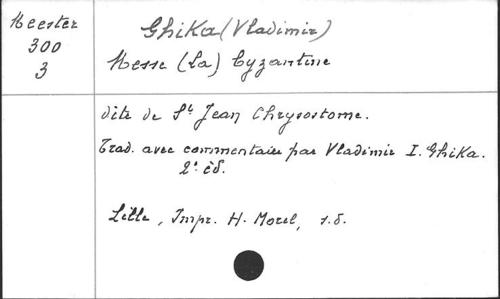 Meester
300
3
Ghika (Vladimir)
Messe (La) byzantine
dite de St Jean Chrysostome.
Trad. avec commentaire par Vladimir I. Ghika.
2e éd.
Lille, Impr. H. Morel, s.d.